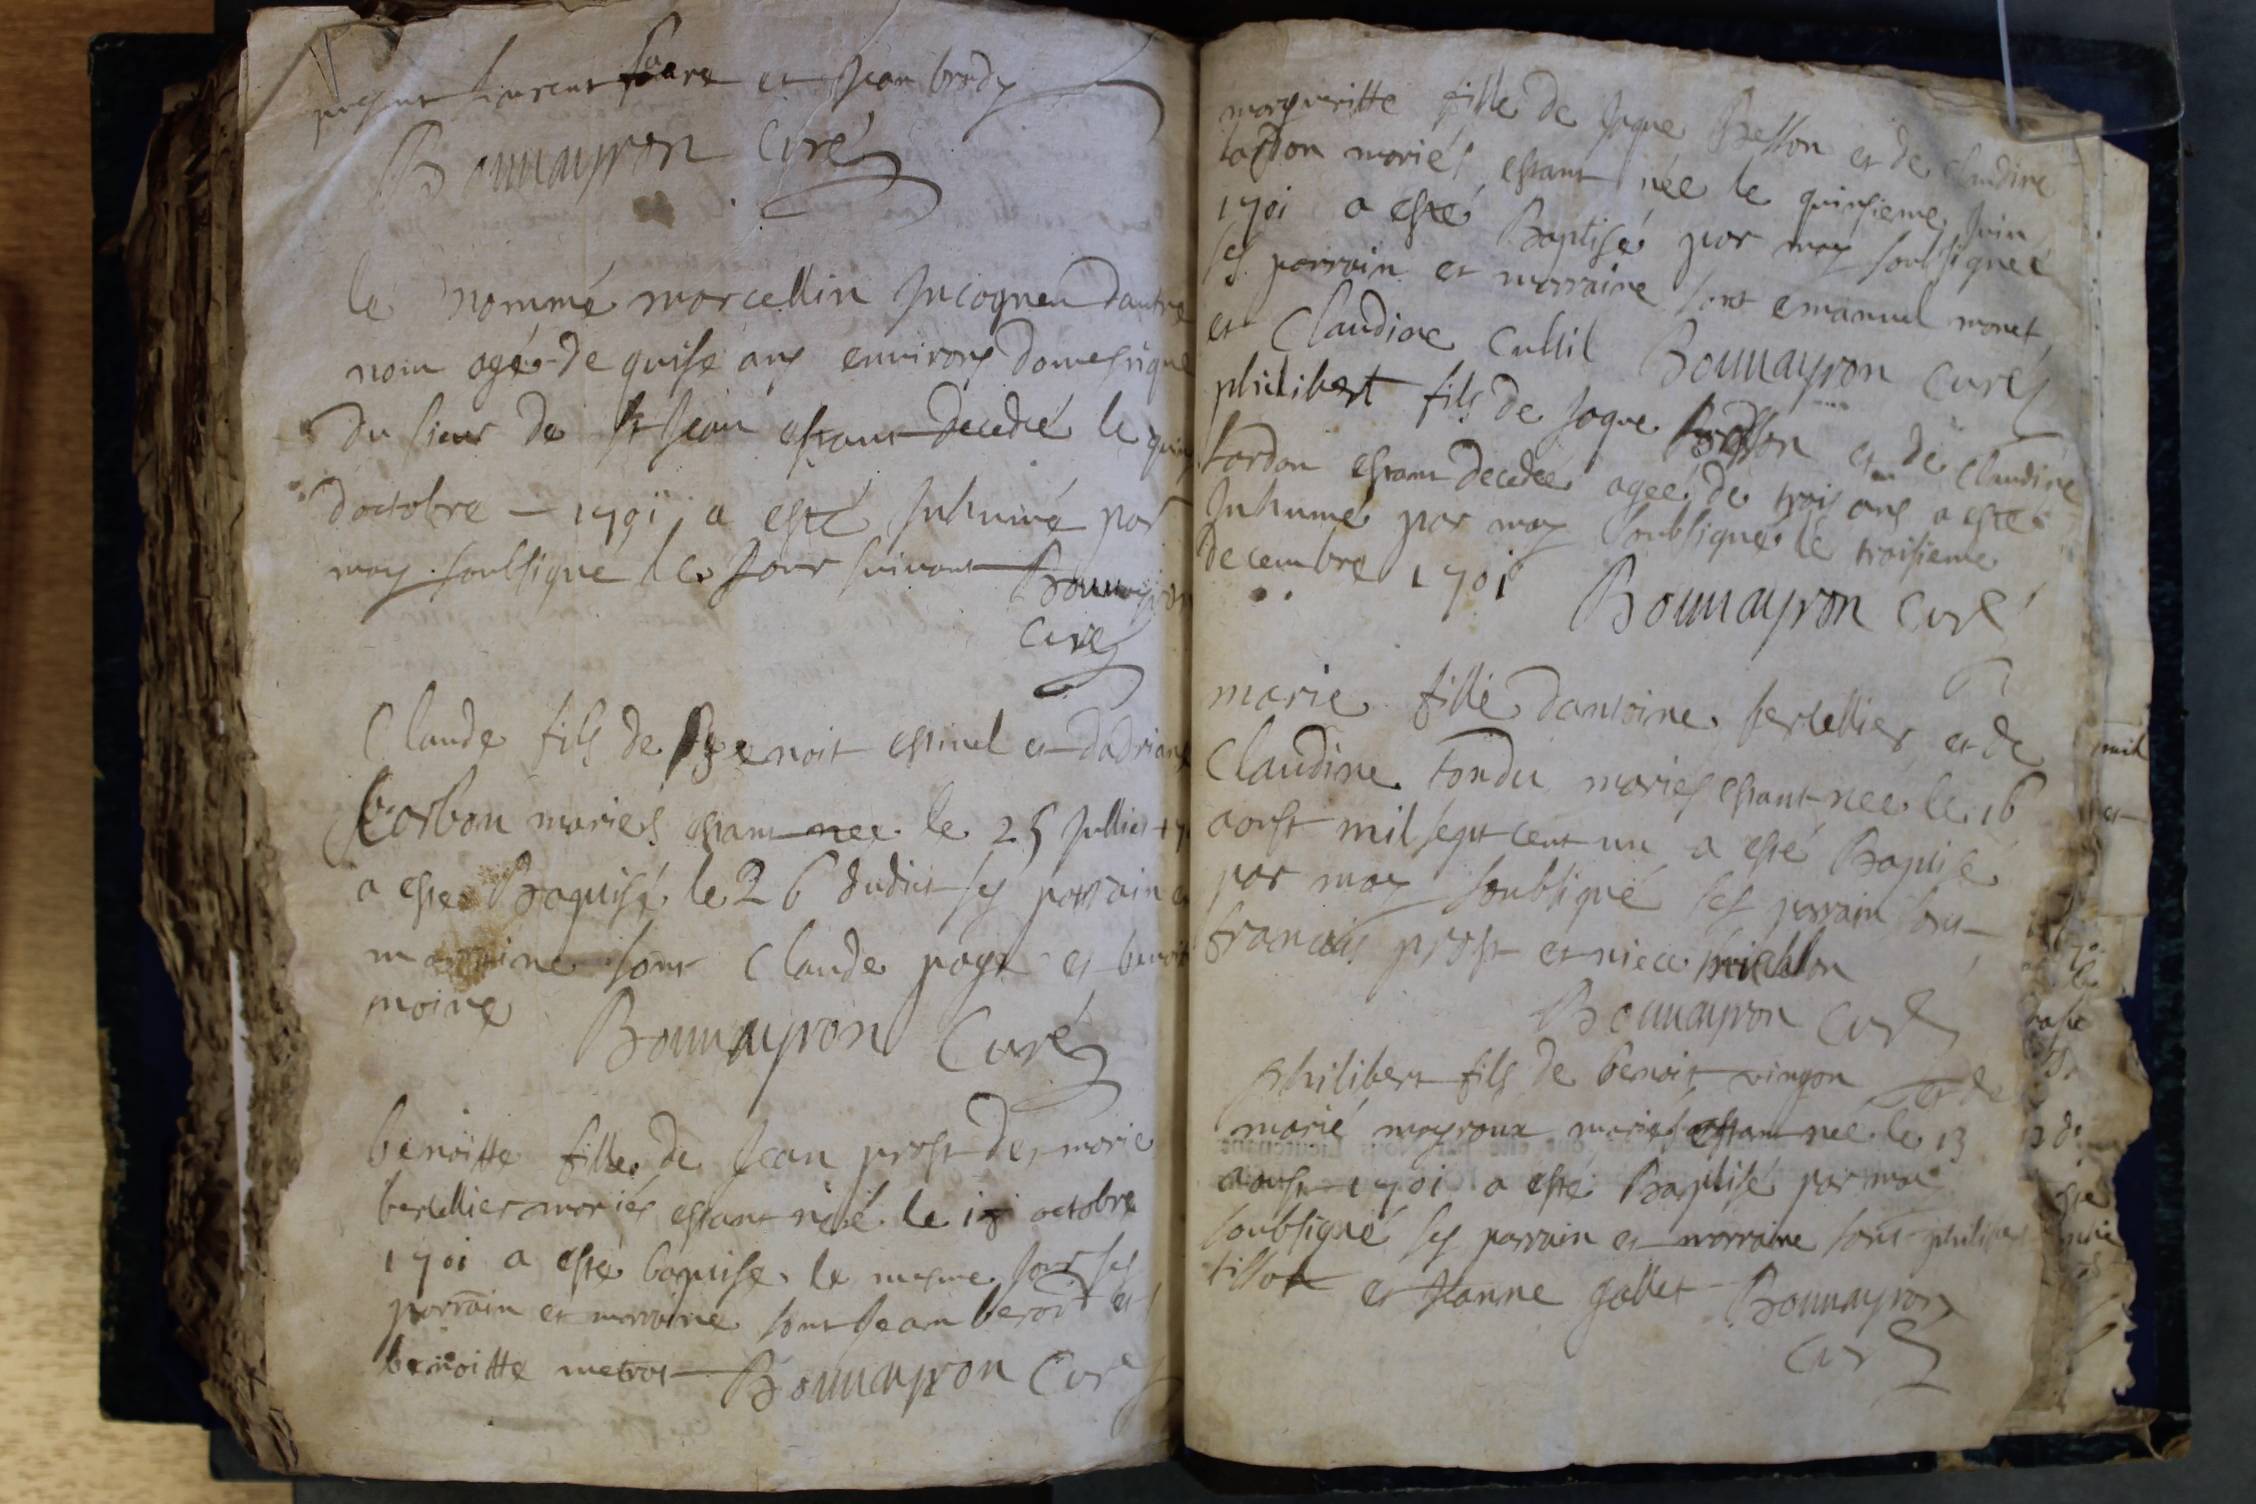 present laurent faure et Jean brody
Boumayron Curé
le nommé marcellin Jncogneu dautre
nom agé de quise ans environs domestique
du sieur de st Jean estant decedé le
doctobre 1701 a esté Jnhumé par
moy soubsigne le Jour suivant Boumayron
Curé
Claude fils de Benoit et dadriane
Corbon mariés estant nee le 25 Jullier
a este Baptisé le 26 dudict ses parrain et
marraine sont Claude page et benoite
moine Boumayron Curé
benoitte fille de Jean prost de marie
bertellier mariés estant née le octobre
1701 a esté baptise le mesme Jour ses
parrain et marraine sont Jean berod et
benoitte metrat Boumayron Curé
margueritte fille de Jaque Besson et de Claudine
tardon mariés estant née le quinsieme Juin
1701 a esté Baptisé par moy soubsigneé
ses parrain et marraine sont emanuel monet
et Claudine Boumayron Curé
philibert fils de Jaque Besson et de Claudine
tardon estant decedeé ageé de trois ans a esté
Jnhumé par moy soubsigné le troisieme
decembre 1701 Boumayron Curé
marie fille dantoine bertellier et de
Claudine tondu mariés estant née le 16
aoust mil sept cent un a esté Baptisé
par moy soubsigné ses parrain sont
francois prost et
Boumayron Curé
Philibert fils de benoit vingon et de
marie mayroux mariés estant née le 13
aoust 1701 a esté Baptisé par moi
soubsigné ses parrain et marraine sont philibert
tissot et Jeanne gallet Boumayron
Curé
mil
et